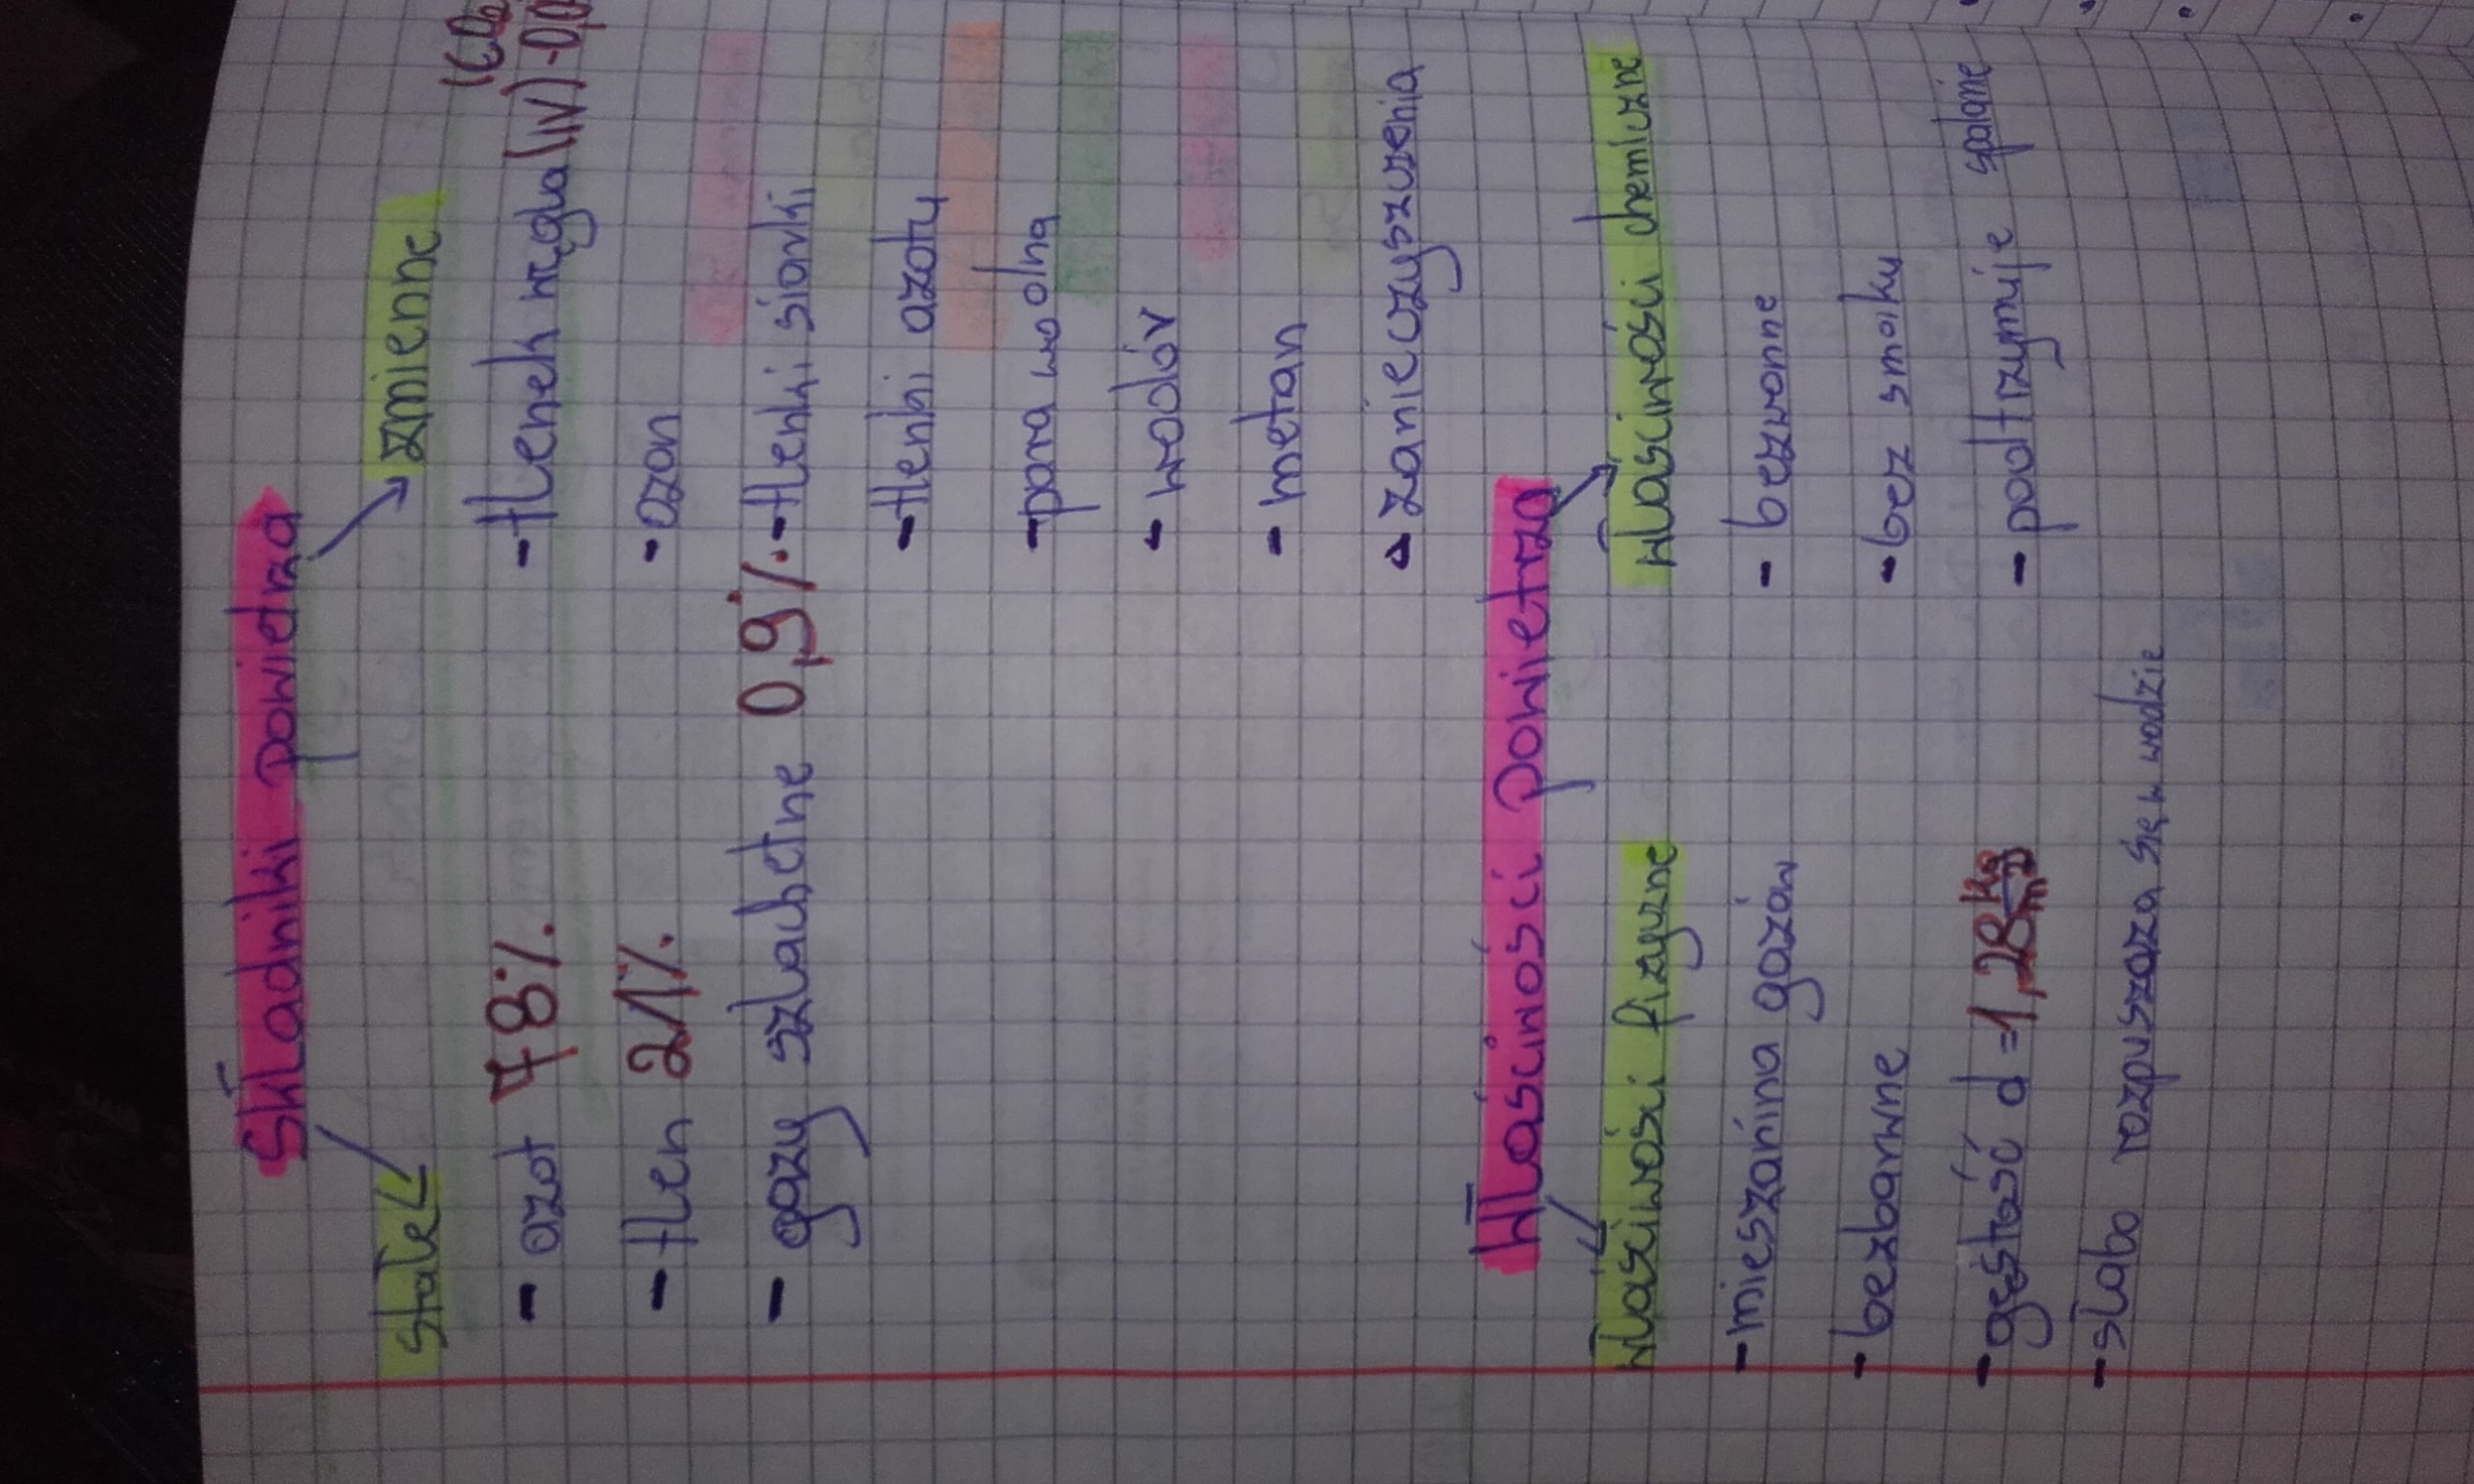 Składniki powietrza
stałe
- azot 78%
- tlen 21%
- gazy szlachetne 0,9%
zmienne
- tlenek węgla (IV) - 0,0
- ozon
- tlenki siarki
- tlenki azotu
- para wodna
- wodór
- metan
- zanieczyszczenia
Właściwości powietrza
właściwości fizyczne
- mieszanina gazów
- bezbarwne
- gęstość d = 1,28 kg/m³
- słabo rozpuszcza się w wodzie
właściwości chemiczne
- bezwonne
- bez smaku
- podtrzymuje spalanie